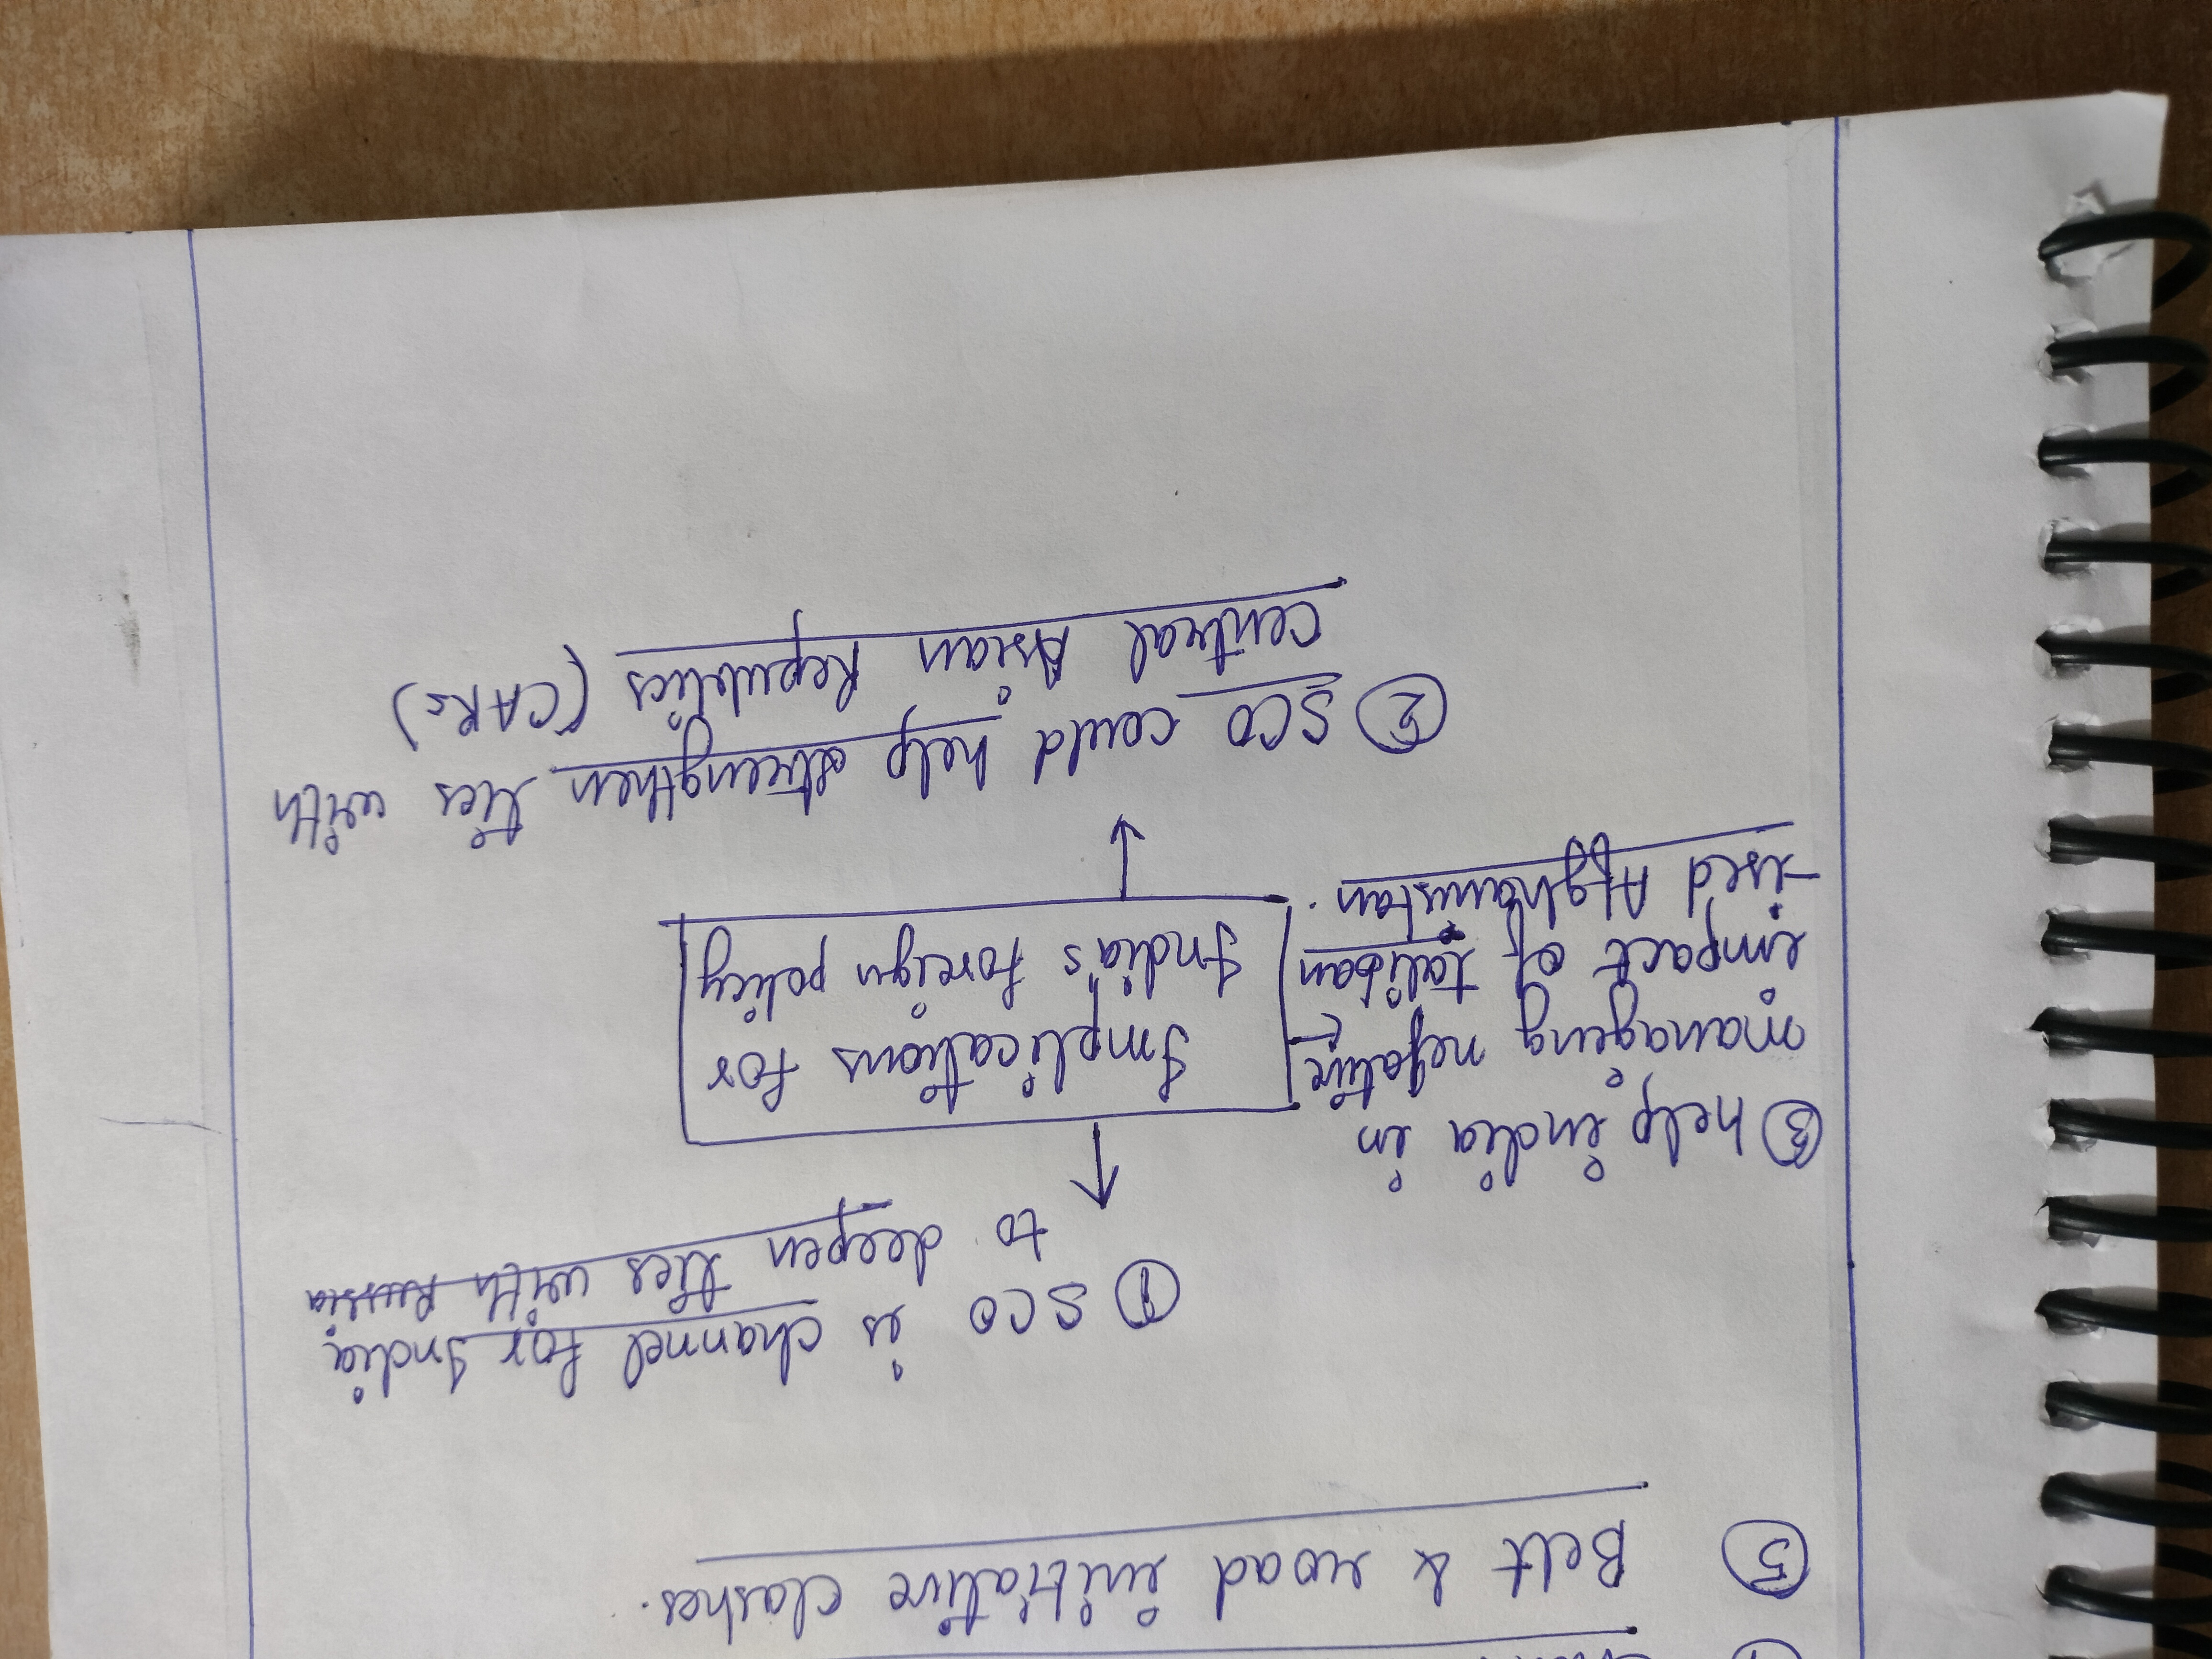 ⑤ Belt & road initiative clashes.
① SCO is channel for India
to deepen ties with Russia
③ help india in
managing negative
impact of taliban
-ised Afghanistan.
Implications for
India's foreign policy
② SCO could help strengthen ties with
Central Asian Republics (CARs)